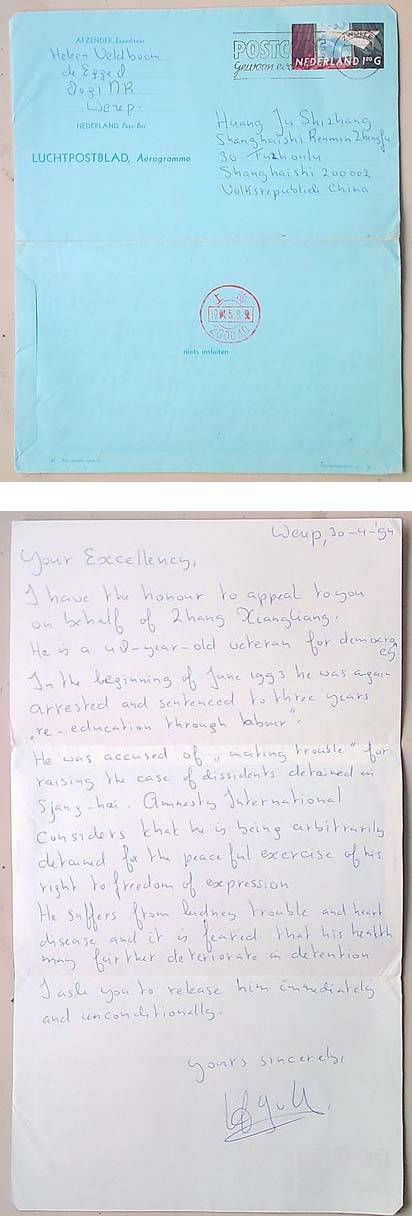 AFZENDER, Expéditeur
Heleen Veldboom
de Egged
NR
NEDERLAND, Pays-Bas
LUCHTPOSTBLAD, Aérogramme
POSTCODE
Gewoon
NEDERLAND 1.00 G
Huang Ju Shizhang
Shanghaishi Renmin Zhengfu
30 Fuzhoulu
Shanghaishi 200002
Volksrepubliek China
200040
niets insluiten
30-4-'94
Your Excellency,
I have the honour to appeal to you
on behalf of Zhang Xianliang.
He is a 48-year-old veteran for democra
cy
In the beginning of June 1993 he was again
arrested and sentenced to three years
„re-education through labour".
He was accused of „inciting trouble" for
raising the case of dissidents detained in
Sjang-hai. Amnesty International
considers that he is being arbitrarily
detained for the peaceful exercise of his
right to freedom of expression
He suffers from kidney trouble and heart
disease and it is feared that his health
may further deteriorate in detention
I ask you to release him immediately
and unconditionally.
yours sincerely,